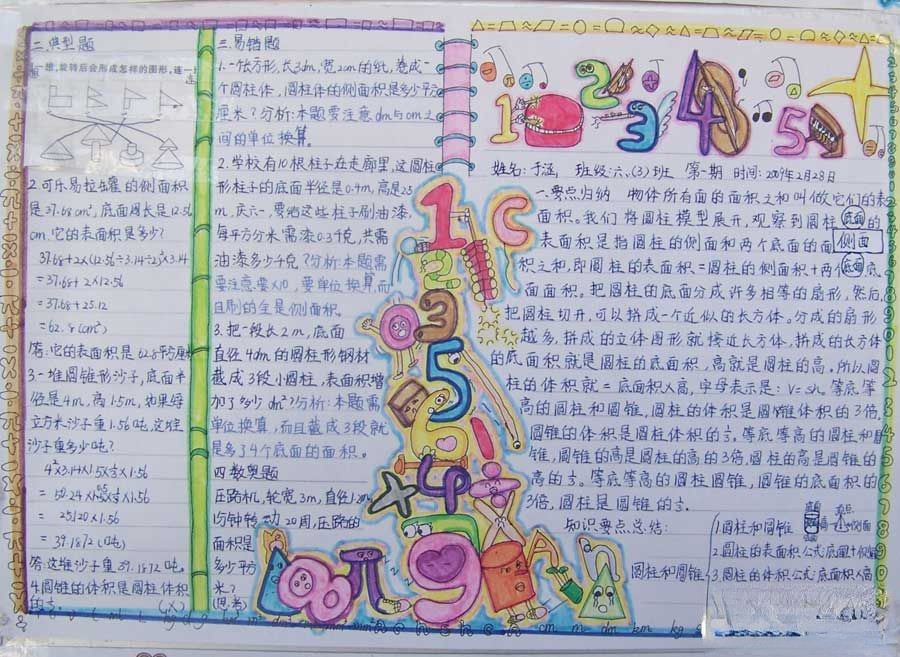 二.典型题
一组,旋转后会形成怎样的图形,连一
连
2.可乐易拉罐的侧面积
是37.68cm²,底面周长是12.56
cm.它的表面积是多少?
37.68+2×(12.56÷3.14÷2)²×3.14
=37.68+2×12.56
=37.68+25.12
=62.8(cm²)
答:它的表面积是62.8平方厘米
3.一堆圆锥形沙子,底面半
径是4m,高1.5m,如果每
立方米沙子重1.56吨,这堆
沙子重多少吨?
=39.1872(吨)
答:这堆沙子重39.1872吨。
4.圆锥的体积是圆柱体积
的⅓。(×)
三.易错题
1.一个长方形,长3dm,宽2cm的纸,卷成一
个圆柱体,圆柱体的侧面积是多少平
厘米?分析:本题要注意dm与cm之
间的单位换算。
2.学校有10根柱子在走廊里,这圆柱
形柱子的底面半径是0.4m,高是2.5
m,庆六一,要给这些柱子刷油漆,
每平方分米需漆0.3千克,共需
油漆多少千克?分析:本题需
要注意:要×10,要单位换算,而
且刷的全是侧面积。
3.把一段长2m,底面
直径4dm的圆柱形钢材
截成3段小圆柱,表面积增
加了多少dm²?分析:本题需
单位换算,而且截成3段就
是多了4个底面的面积。
四.数奥题
压路机,轮宽3m,直径1.20m
转动20周,压路的
面积是
多少平方
米?
(思考)
1 2 3 4 5
姓名:于涵, 班级:六.(3)班 第一期 时间:2009年2月28日
一.要点归纳 物体所有面的面积之和叫做它们的表
面积。我们将圆柱模型展开,观察到圆柱底面的
表面积是指圆柱的侧面和两个底面的面侧面
积之和,即圆柱的表面积=圆柱的侧面积+两个底面底
面面积。把圆柱的底面分成许多相等的扇形,然后
把圆柱切开,可以拼成一个近似的长方体,分成的扇形
越多,拼成的立体图形就接近长方体,拼成的长方体
的底面积就是圆柱的底面积,高就是圆柱的高。所以圆
柱的体积就=底面积×高,字母表示是:V=sh。等底等
高的圆柱和圆锥,圆柱的体积是圆锥体积的3倍,
圆锥的体积是圆柱体积的⅓。等底等高的圆柱和圆
锥,圆锥的高是圆柱的高的3倍,圆柱的高是圆锥的
高的⅓。等底等高的圆柱圆锥,圆锥的底面积的
3倍,圆柱是圆锥的⅓。
知识要点总结:
圆柱和圆锥
1圆柱和圆锥
2.圆柱的表面积公式:
3.圆柱的体积公式:底面积×高